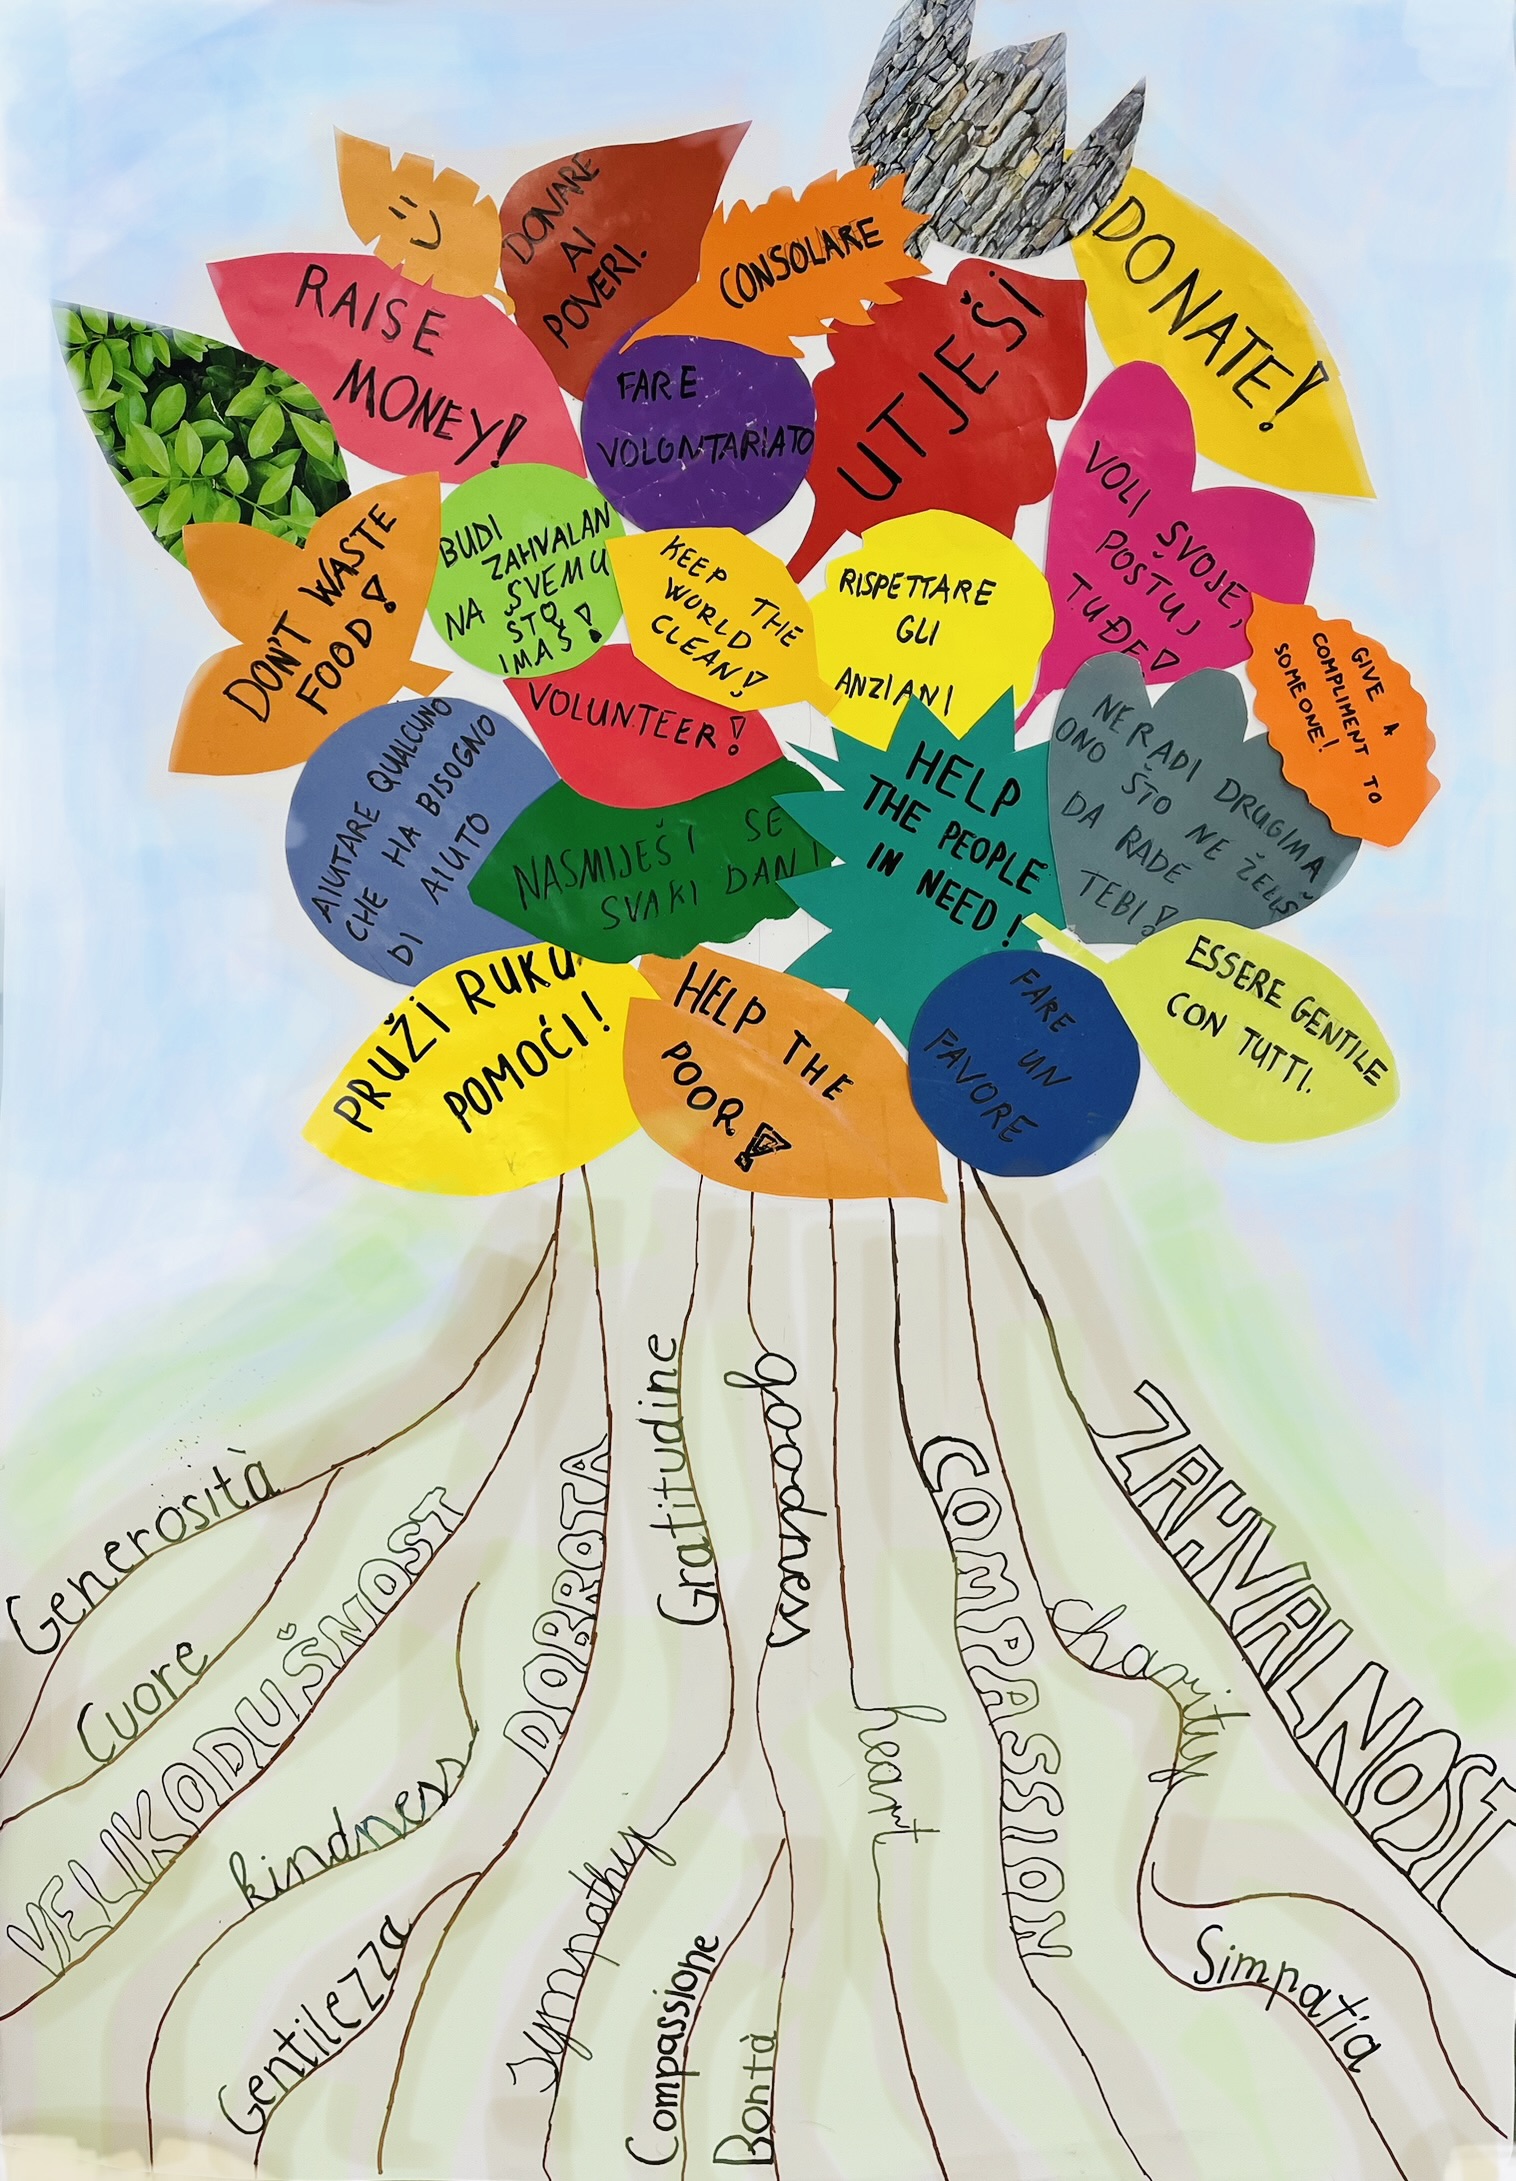 DONARE
AI
POVERI.
CONSOLARE
DONATE!
RAISE
MONEY!
FARE
VOLONTARIATO
UTJEŠI
VOLI SVOJE,
POŠTUJ
TUĐE!
DON'T WASTE
FOOD!
BUDI
ZAHVALAN
NA SVEMU
ŠTO
IMAŠ!
KEEP THE
WORLD
CLEAN!
RISPETTARE
GLI
ANZIANI
GIVE A
COMPLIMENT TO
SOMEONE!
VOLUNTEER!
AIUTARE QUALCUNO
CHE HA BISOGNO
DI AIUTO
NASMIJEŠI SE
SVAKI DAN!
HELP
THE PEOPLE
IN NEED!
NE RADI DRUGIMA
ONO ŠTO NE ŽELIŠ
DA RADE
TEBI!
PRUŽI RUKU
POMOĆI!
HELP THE
POOR!
FARE
UN
FAVORE
ESSERE GENTILE
CON TUTTI.
Generosità
Cuore
VELIKODUŠNOST
kindness
Gentilezza
DOBROTA
Gratitudine
sympathy
goodness
Compassione
Bontà
heart
COMPASSION
charity
Simpatia
ZAHVALNOST